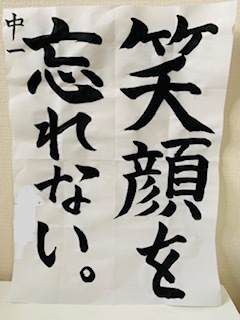 笑顔を
忘れない。
中一